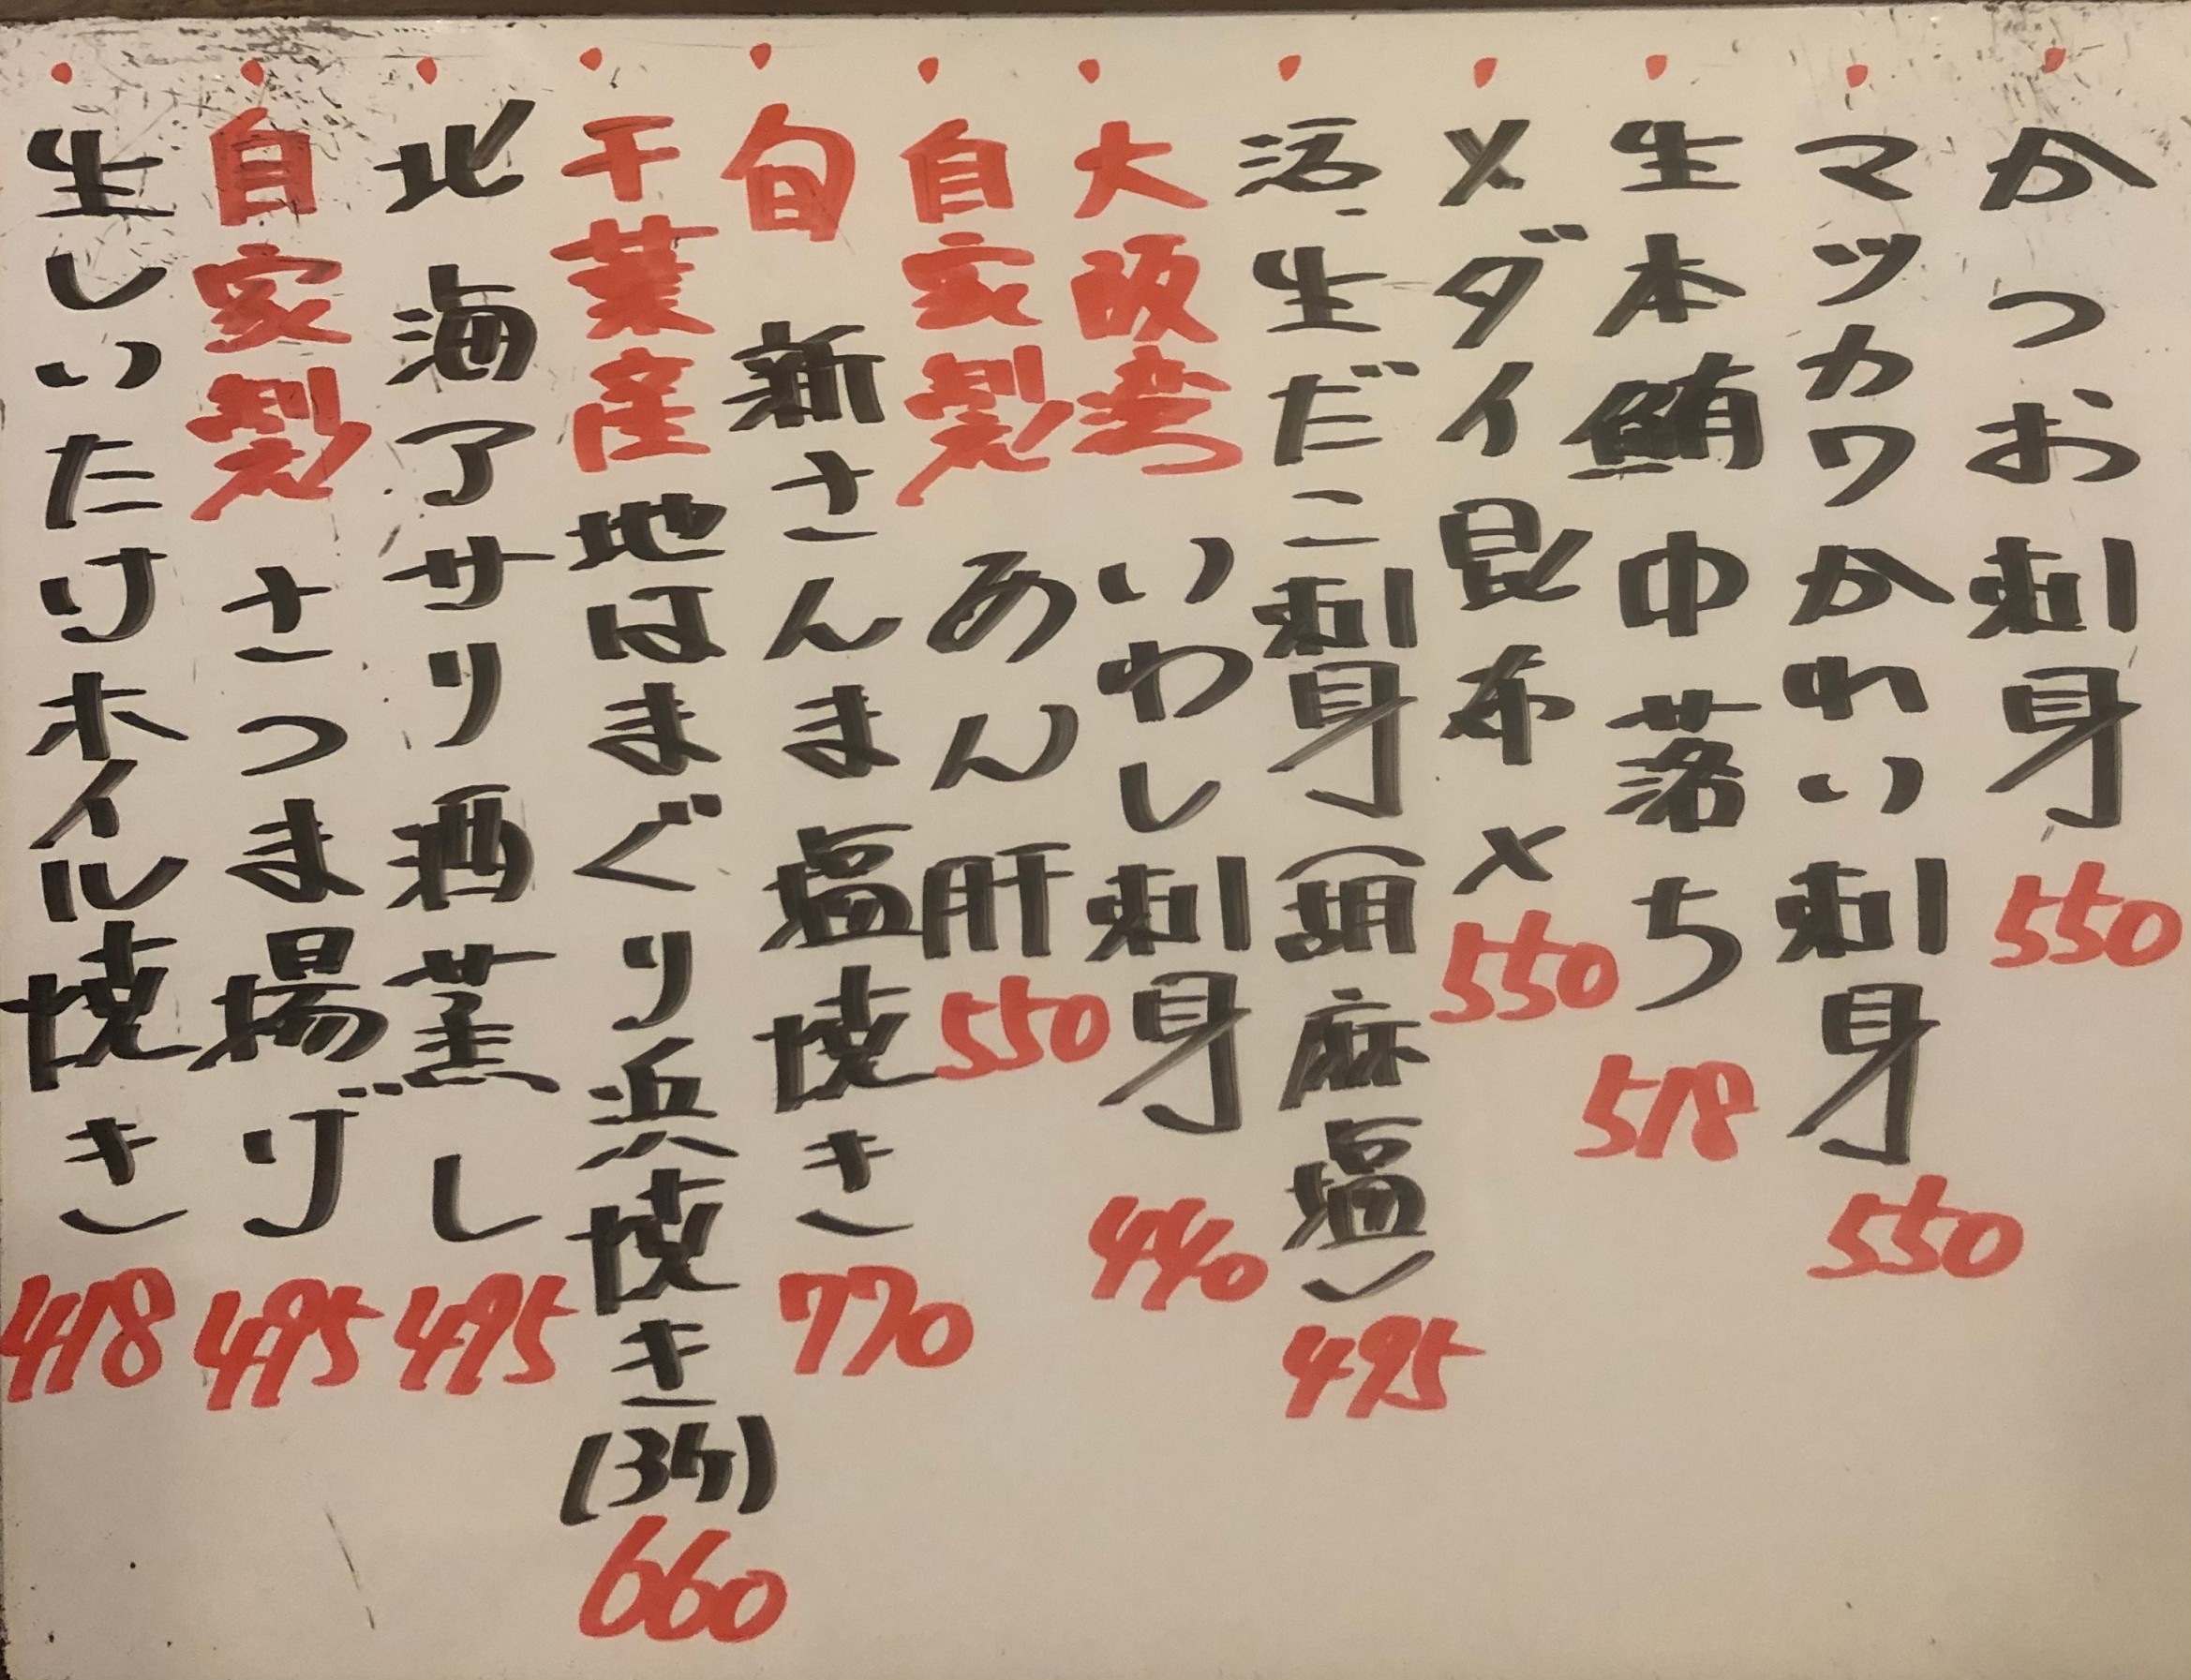 ・かつお刺身 550
・マツカワかれい刺身 550
・生本鮪中落ち 518
・メダイ昆布〆 550
・活〆生だこ刺身(胡麻塩) 495
・大阪湾 いわし刺身 440
・自家製 あん肝 550
・旬 新さんま塩焼き 770
・千葉産 地はまぐり浜焼き(3ケ) 660
・北海アサリ酒蒸し 495
・自家製 さつま揚げ 495
・生しいたけホイル焼き 418